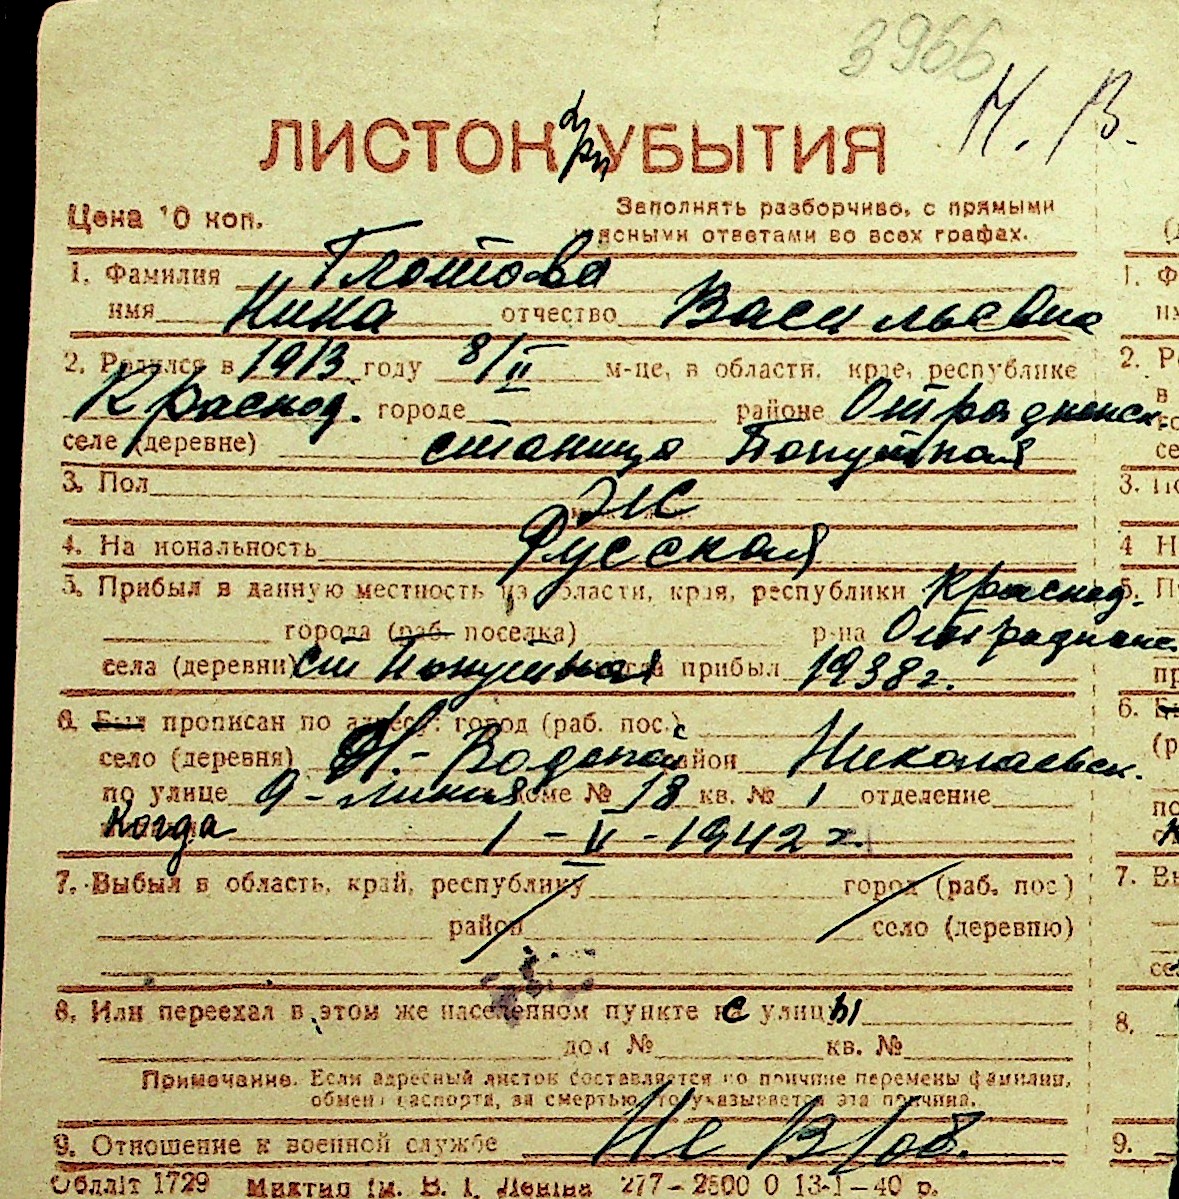 3966
Н. В.
ЛИСТОК при УБЫТИЯ
Цена 10 коп.
Заполнять разборчиво, с прямыми
и ясными ответами во всех графах.
1. Фамилия Глотова
имя Нина отчество Васильевна
2. Родился в 1913 году 8/II м-це, в области, крае, республике
Краснод. городе районе Отрадненск.
селе (деревне) станица Попутная
3. Пол Ж
4. Национальность Русская
5. Прибыл в данную местность из области, края, республики Краснод.
города (раб. поселка) р-на Отрадненс
села (деревни) ст Попутная когда прибыл 1938 г.
6. Был прописан по адресу: город (раб. пос.)
село (деревня) район Николаевск.
по улице 9-линия доме № 18 кв. № 1 отделение
Когда 1-V-1942 г.
7. Выбыл в область, край, республику город (раб. пос)
район село (деревню)
8. Или переехал в этом же населенном пункте с улицы
дом № кв. №
Примечание. Если адресный листок составляется по причине перемены фамилии,
обмена паспорта, за смертью, то указывается эта причина.
9. Отношение к военной службе Не В/об.
Обллит 1729 им. В. И. Ленина 277-2500 0 13-1-40 р.
1. Ф
2. Р
в
се
3.
4 Н
5. П
пр
6.
(р
по
7. Вы
се
8.
9.